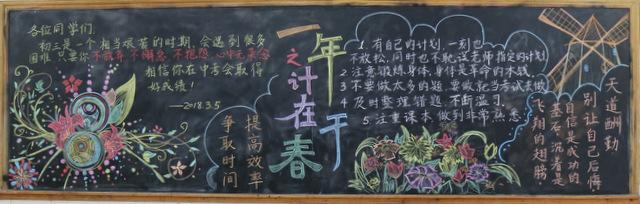 各位同学们:
初三是一个相当艰苦的时期,会遇到很多
困难,只要你不放弃 不懈怠 不抱怨 心中无杂念
相信你在中考会取得
好成绩!
——2018.3.5
争取时间
提高效率
一年
之计在
春
1.有自己的计划,一刻也
不放松,同时也不耽误老师指定的计划
2.注意锻炼身体,身体是革命的本钱
3.不要做太多的题,要做
4.及时整理错题,不断温习
5.注重课本,做到非常熟悉
天道酬勤
别让自己后悔
自信是成功的
基石,沉着是
飞翔的翅膀